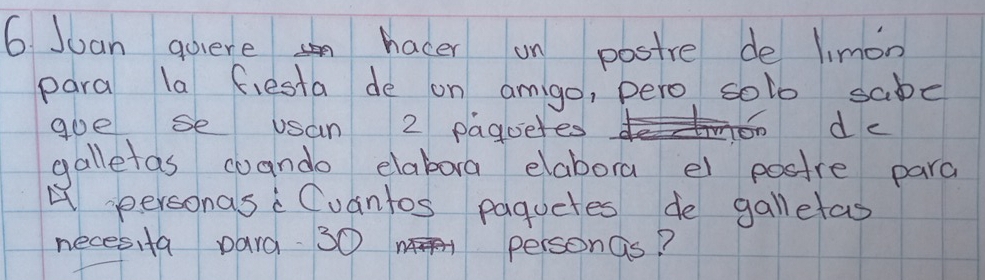 6. Juan quiere hacer un postre de limón
para la fiesta de un amigo, pero solo sabe
que se usan 2 páquetes de
galletas cuando elabora elabora el postre para
4 personas ¿Cuantos paquetes de galletas
necesita para 30 personas?